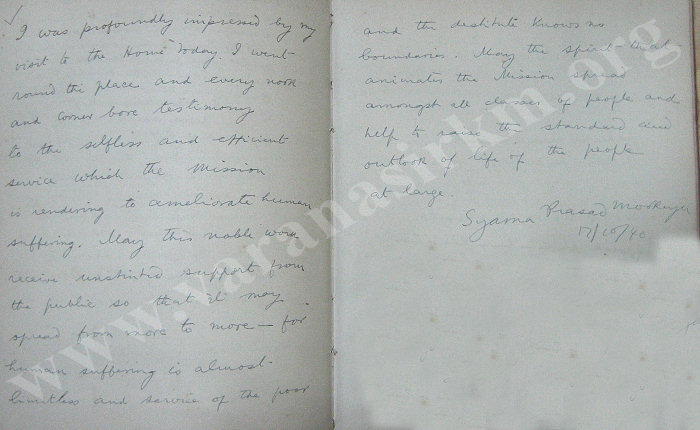 I was profoundly impressed by my
visit to the Home today. I went
round the place and every nook
and corner bore testimony
to the selfless and efficient
service which the Mission
is rendering to ameliorate human
suffering. May this noble work
receive unstinted support from
the public so that it may
spread from more to more — for
human suffering is almost
limitless and service of the poor
and the destitute knows no
boundaries. May the spirit that
animates the Mission spread
amongst all classes of people and
help to raise the standard and
outlook of life of the people
at large.
Syama Prasad Mookerjee
17/10/40
www.varanasirkm.org